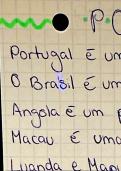 ·P·O
Portugal é um
O Brasil é um
Angola é um
Macau é uma
Luanda e